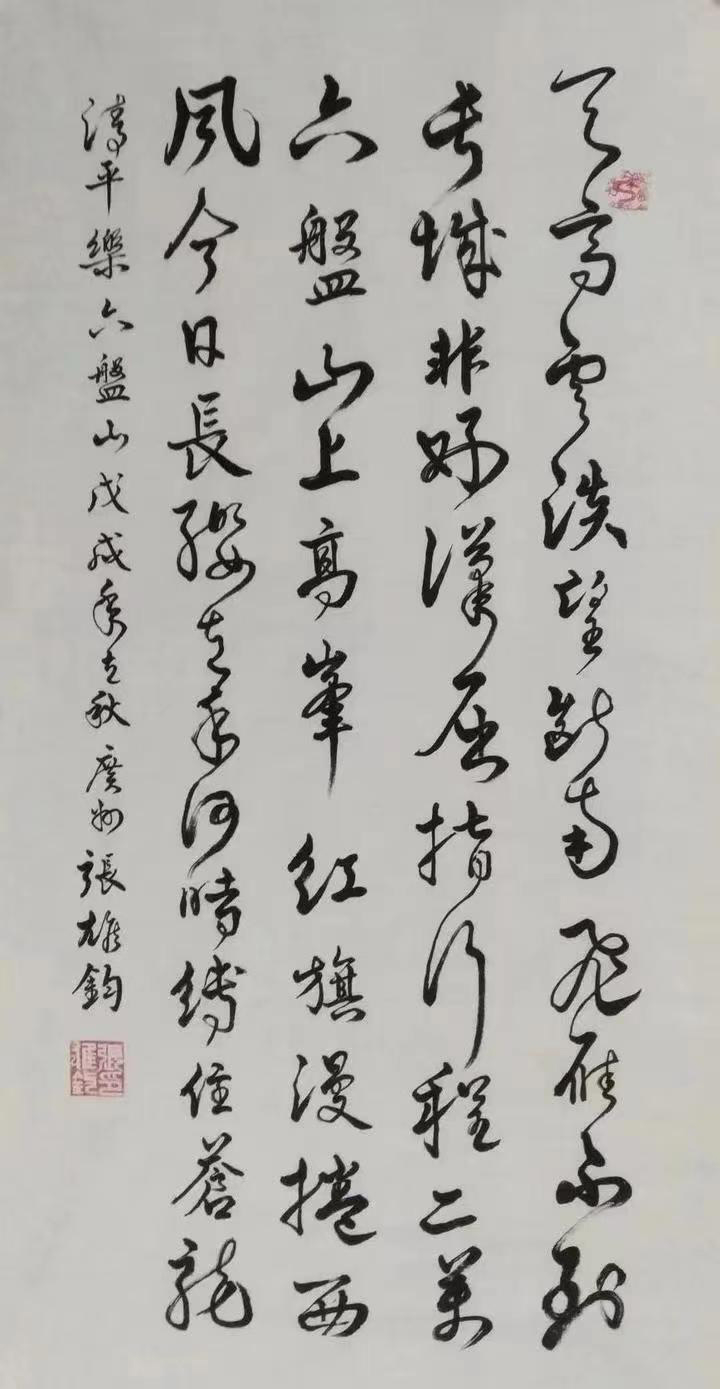 天高雲淡望斷南飛雁不到
長城非好漢屈指行程二萬
六盤山上高峯紅旗漫捲西
風今日長纓在手何時縛住蒼龍
清平樂六盤山戊戌年立秋廣州張雄鈞